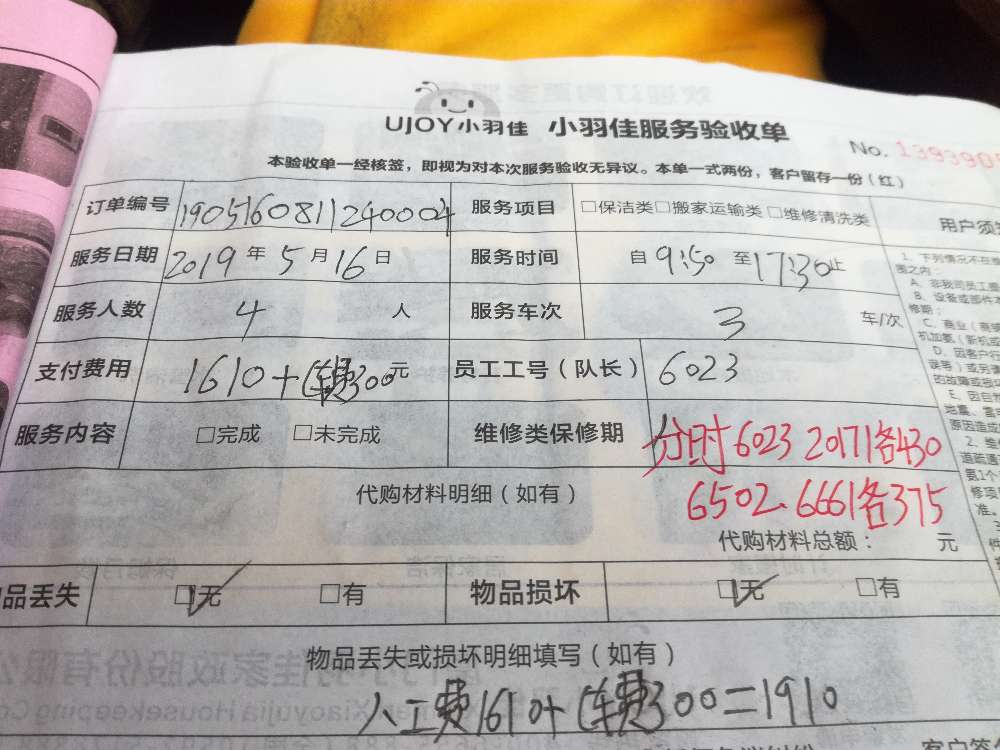 UJOY小羽佳 小羽佳服务验收单
No. 1393905
本验收单一经核签，即视为对本次服务验收无异议。本单一式两份，客户留存一份（红）
订单编号 1905160811240004 服务项目 □保洁类□搬家运输类□维修清洗类
服务日期 2019年5月16日 服务时间 自9:50至17:30止
服务人数 4 人 服务车次 3 车/次
支付费用 1610+车费300元 员工工号（队长） 6023
服务内容 □完成 □未完成 维修类保修期 分时6023 20171各430
6502、6661各375
代购材料明细（如有）
代购材料总额： 元
品丢失 ☑无 □有 物品损坏 ☑无 □有
物品丢失或损坏明细填写（如有）
人工费1610+车费300=1910
用户须
1、下列情况不在
围之内：
A、非我司员工
B、设备或部件
修期；
C、商业（
机加氨（新机或
D、因客户行
的故障或损
E、因自然
地震、雷
原因造成
2、维
道疏通
氨1个
修项
准。